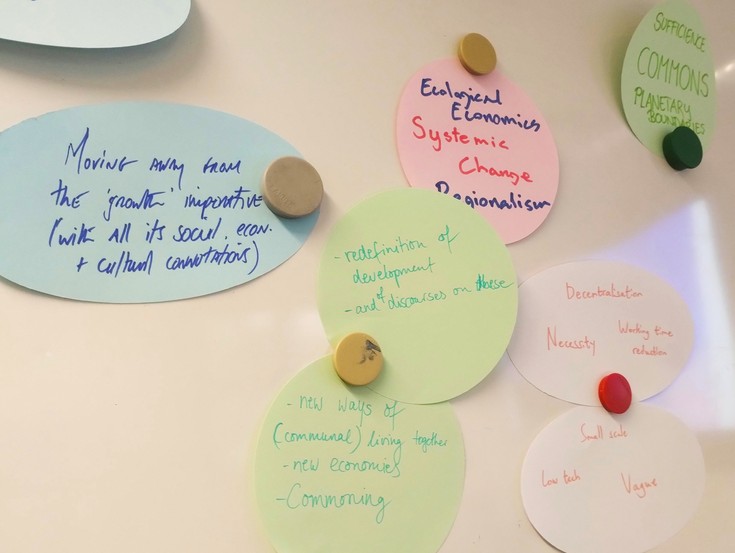 Moving away from
the 'growth' imperative
(with all its social, econ.
+ cultural connotations)
Ecological
Economics
Systemic
Change
Regionalism
SUFFICIENCE
COMMONS
PLANETARY
BOUNDARIES
- redefinition of
development
- and of discourses on these
- new ways of
(communal) living together
- new economies
- Commoning
Decentralisation
Necessity
Working time
reduction
Small scale
Low tech
Vague